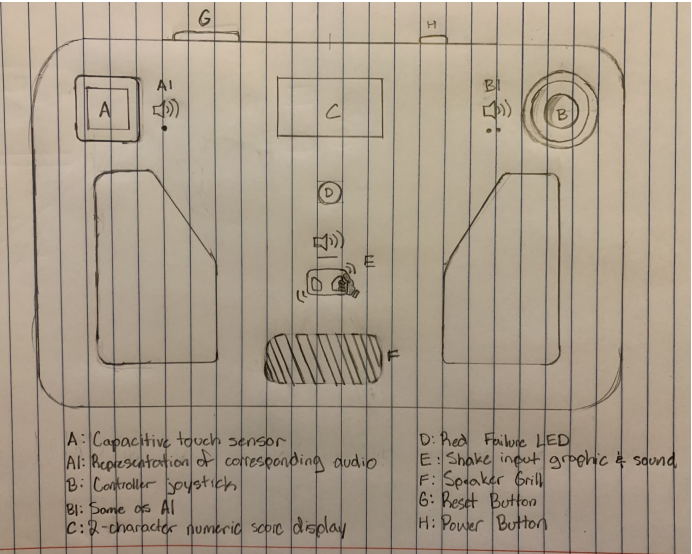 G
H
A
A1
C
B1
B
D
E
F
A: Capacitive touch sensor
A1: Representation of corresponding audio
B: Controller joystick
B1: Same as A1
C: 2-character numeric score display
D: Red Failure LED
E: Shake input graphic & sound
F: Speaker Grill
G: Reset Button
H: Power Button